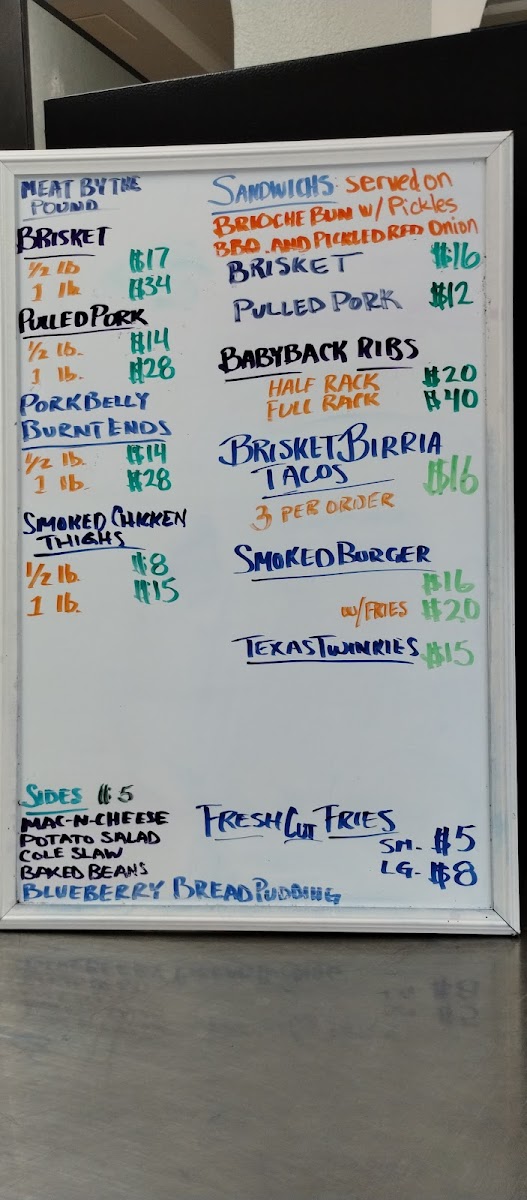 MEAT BY THE
POUND
BRISKET
1/2 lb $17
1 lb $34
PULLED PORK
1/2 lb. $14
1 lb. $28
PORK BELLY
BURNT ENDS
1/2 lb. $14
1 lb. $28
SMOKED CHICKEN
THIGHS
1/2 lb. $8
1 lb. $15
SIDES $5
MAC-N-CHEESE
POTATO SALAD
COLE SLAW
BAKED BEANS
BLUEBERRY BREAD PUDDING
SANDWICHS: served on
BRIOCHE BUN W/ Pickles
BBQ. AND PICKLED RED Onion
BRISKET $16
PULLED PORK $12
BABYBACK RIBS
HALF RACK $20
FULL RACK $40
BRISKET BIRRIA
TACOS $16
3 PER ORDER
SMOKED BURGER
$16
w/FRIES $20
TEXAS TWINKIES $15
FRESH CUT FRIES
SM. $5
LG. $8